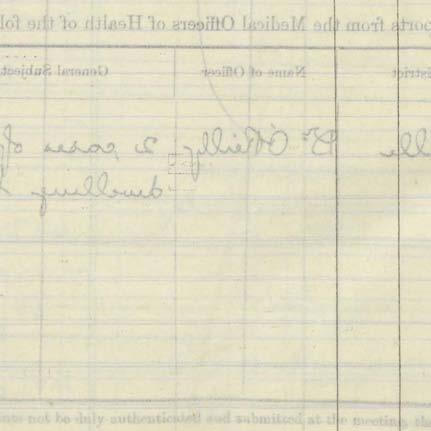 ports from the Medical Officers of Health of the fol
istrict Name of Officer General Subject
lle Dr O'Reilly 2 cases of
dwelling
nts not be duly authenticated and submitted at the meeting, the